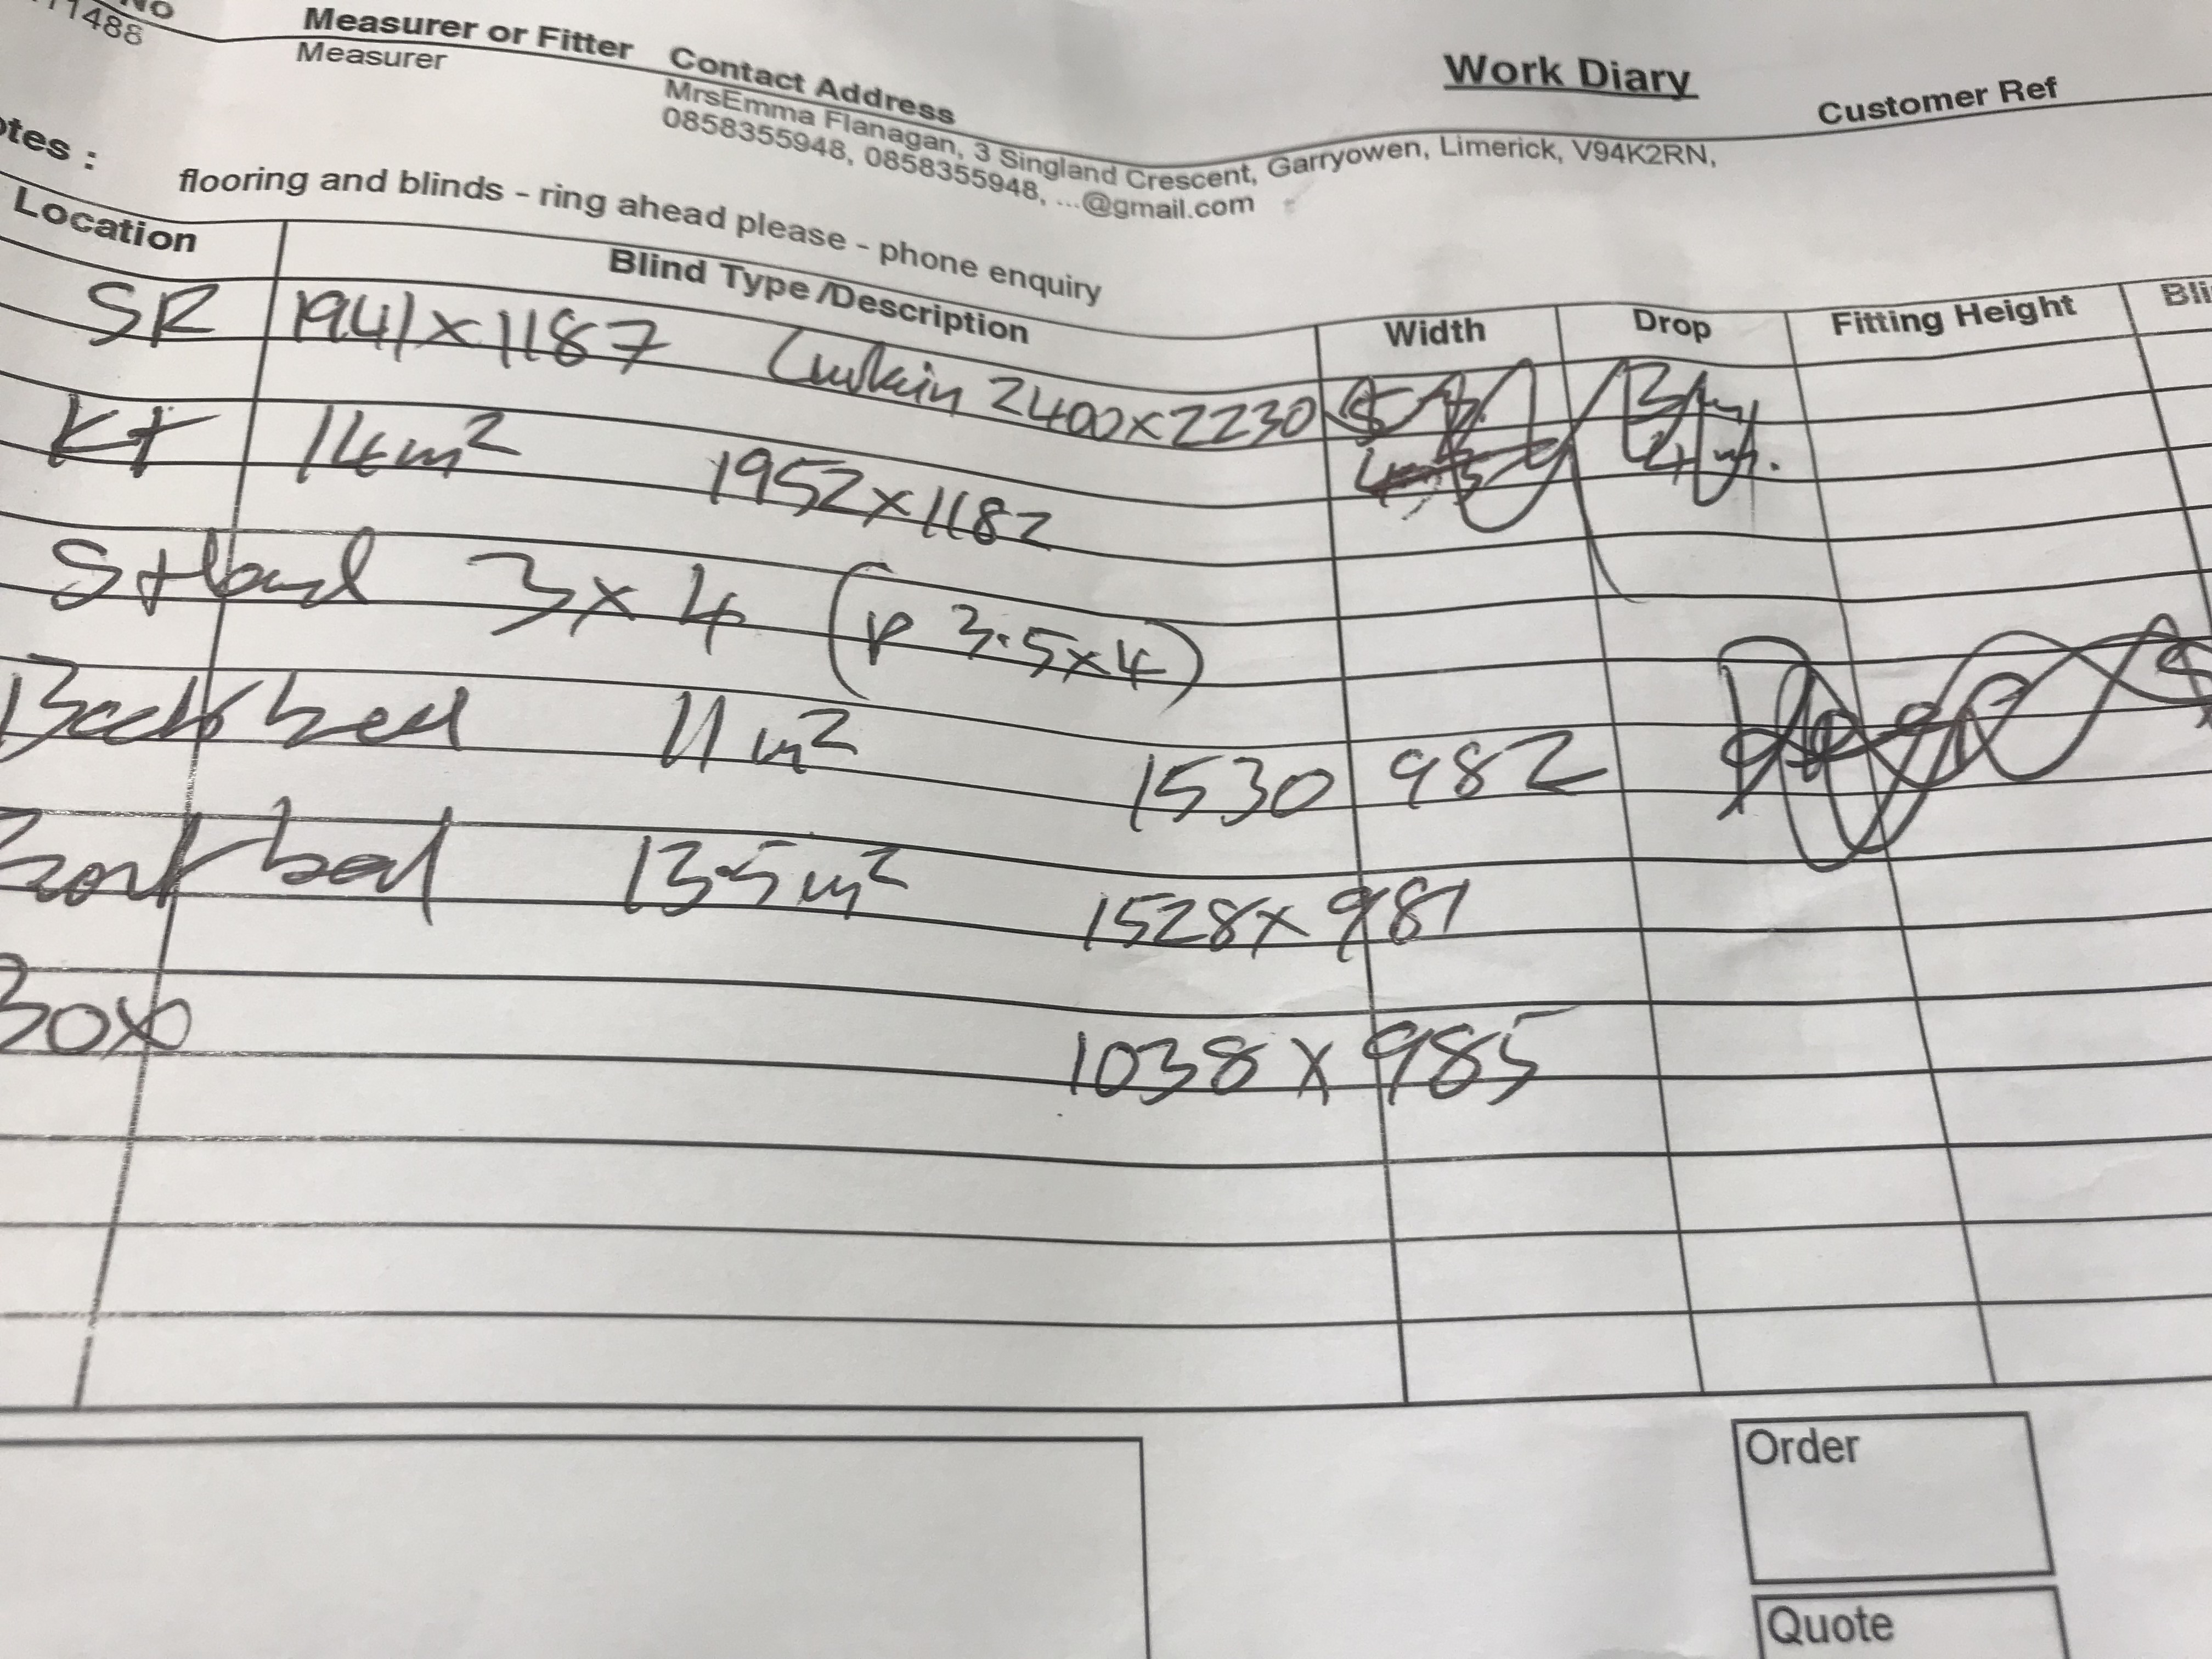 NO
11488
Measurer or Fitter Contact Address Work Diary Customer Ref
Measurer
MrsEmma Flanagan, 3 Singland Crescent, Garryowen, Limerick, V94K2RN,
0858355948, 0858355948, ...@gmail.com
otes :
flooring and blinds - ring ahead please - phone enquiry
Location Blind Type /Description Width Drop Fitting Height Bli
SR 1941x1187 Curtain 2400x2230
Kt 14m² 1952x1182
S+land 3x4 (P 3.5x4)
Back bed 11m² 1530 982
Front bed 13.5m² 1528x981
Box 1038x985
Order
Quote